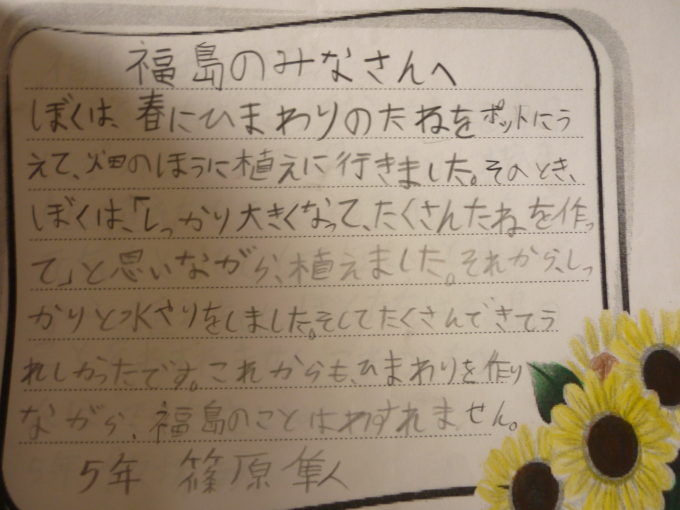 福島のみなさんへ
ぼくは、春にひまわりのたねをポットにう
えて、畑のほうに植えに行きました。そのとき、
ぼくは、「しっかり大きくなって、たくさんたねを作っ
て」と思いながら、植えました。それから、しっ
かりと水やりをしました。そしてたくさんできてう
れしかったです。これからも、ひまわりを作り
ながら、福島のことはわすれません。
5年 篠原隼人